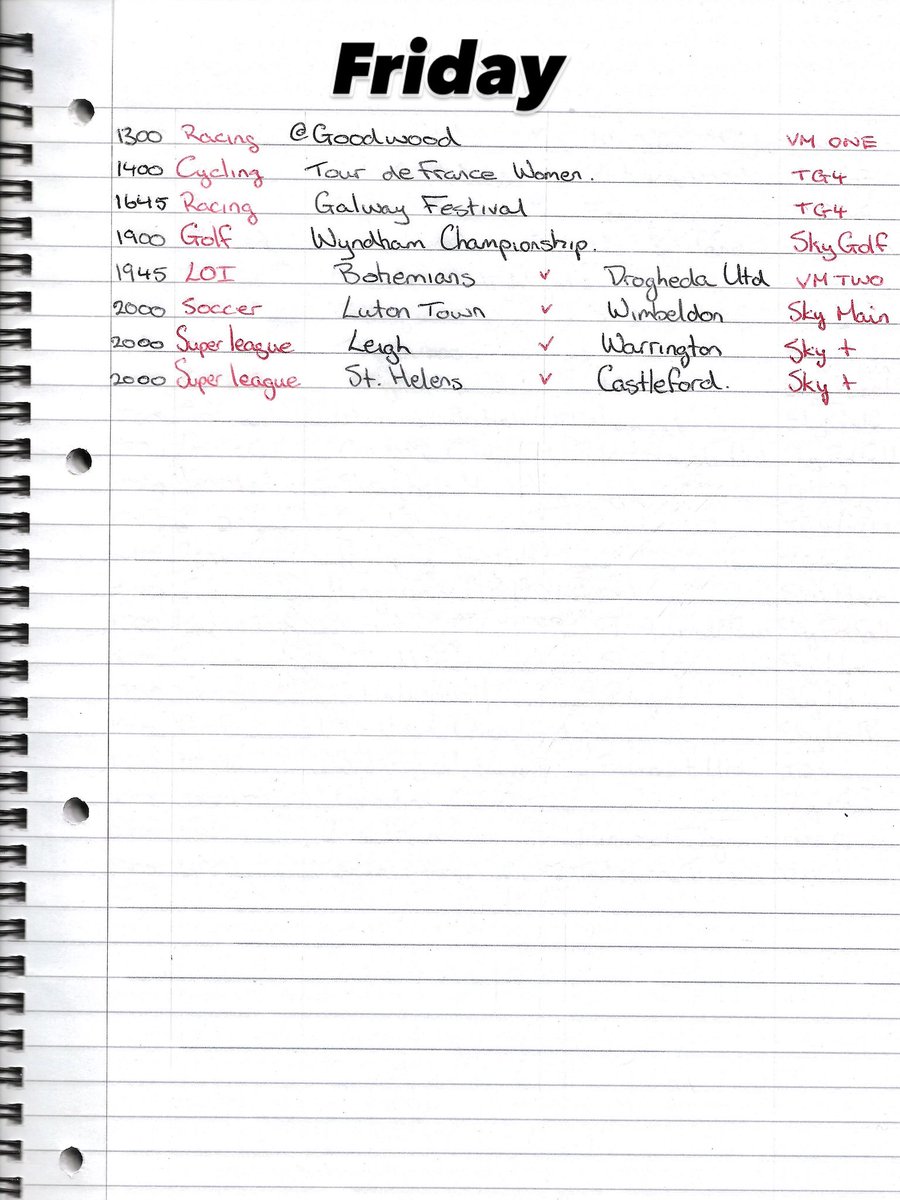 Friday
1300 Racing @Goodwood VM ONE
1400 Cycling Tour de France Women. TG4
1645 Racing Galway Festival TG4
1900 Golf Wyndham Championship. Sky Golf
1945 LOI Bohemians v Drogheda Utd VM TWO
2000 Soccer Luton Town v Wimbeldon Sky Main
2000 Super league Leigh v Warrington Sky +
2000 Super league St. Helens v Castleford. Sky +